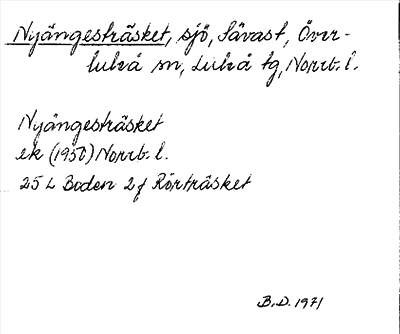 Nyängesträsket, sjö, Sävast, Över-
luleå sn, Luleå tg, Norrb. l.
Nyängesträsket
ek (1950) Norrb. l.
25 L Boden 2f Rörträsket
B.D. 1971